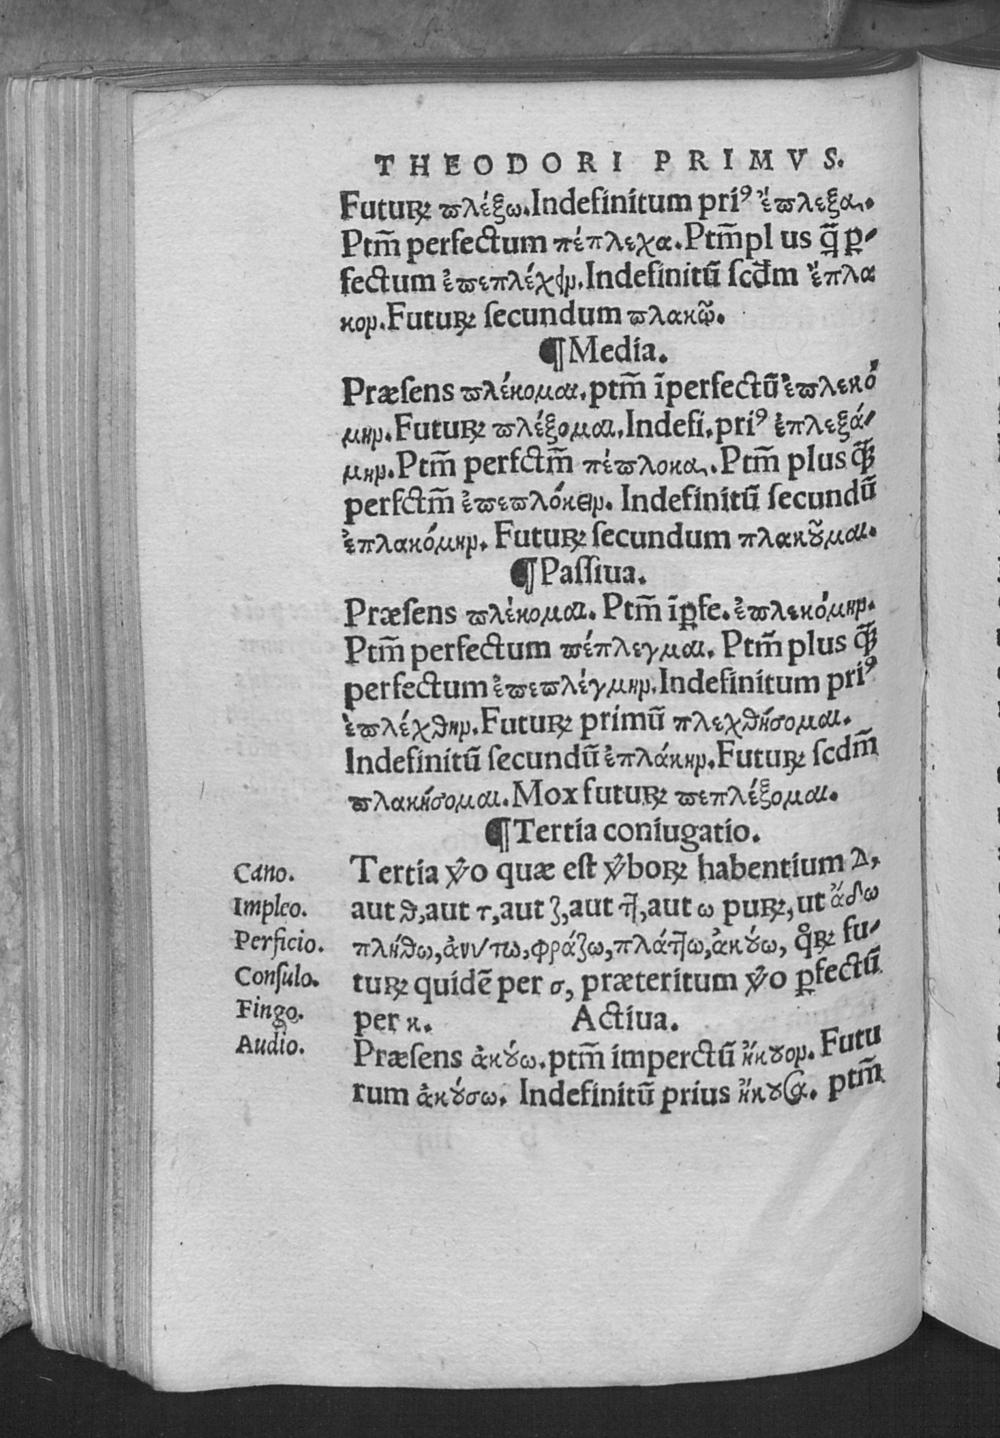 THEODORI PRIMVS.
Futuꝝ πλέξω. Indefinitum priꝰ ἔπλεξα.
Ptm̃ perfectum πέπλεχα. Ptm̃pl us q̃ ꝑ-
fectum ἐπεπλέχειν. Indefinitũ scd̃m ἔπλα
κον. Futuꝝ secundum πλακῶ.
¶Media.
Præsens πλέκομαι. ptm̃ ĩperfectũ ἐπλεκό
μην. Futuꝝ πλέξομαι. Indefi. priꝰ ἐπλεξά-
μην. Ptm̃ perfctm̃ πέπλοκα. Ptm̃ plus q̃ꝫ
perfctm̃ ἐπεπλόκειν. Indefinitũ secundũ
ἐπλακόμην. Futuꝝ secundum πλακοῦμαι.
¶Passiua.
Præsens πλέκομαι. Ptm̃ ĩꝑfe. ἐπλεκόμην.
Ptm̃ perfectum πέπλεγμαι. Ptm̃ plus q̃ꝫ
perfectum ἐπεπλέγμην. Indefinitum priꝰ
ἐπλέχθην. Futuꝝ primũ πλεχθήσομαι.
Indefinitũ secundũ ἐπλάκην. Futuꝝ scdm̃
πλακήσομαι. Mox futuꝝ πεπλέξομαι.
¶Tertia coniugatio.
Tertia ỹo quæ est ỹboꝝ habentium Δ,
aut θ, aut τ, aut ζ, aut ττ, aut ω puꝝ, ut ᾄδω
πλήθω, ἀνύτω, φράζω, πλάττω, ἀκούω, qͦꝝ fu-
tuꝝ quidẽ per σ, præteritum ỹo ꝑfectũ
per κ. Actiua.
Præsens ἀκούω. ptm̃ imperctũ ἤκουον. Futu
rum ἀκούσω. Indefinitũ prius ἤκουσα. ptm̃
Cano.
Impleo.
Perficio.
Consulo.
Fingo.
Audio.